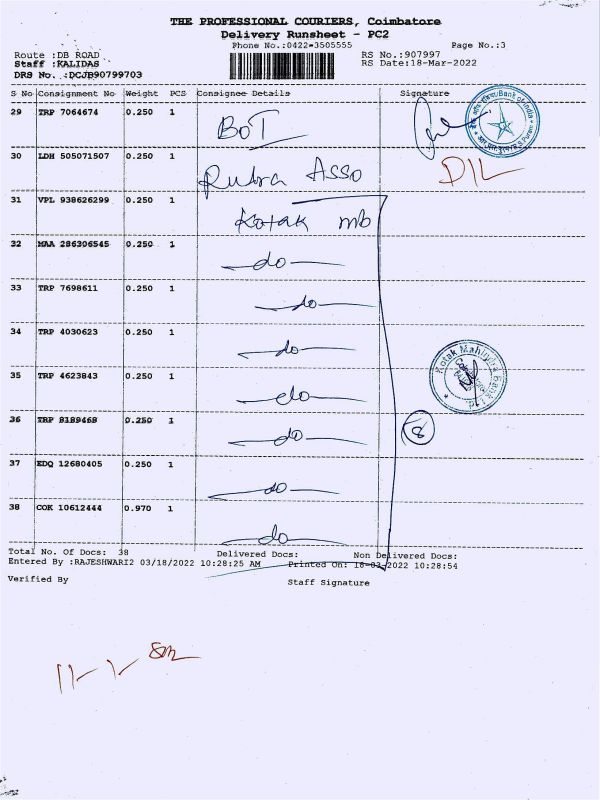 THE PROFESSIONAL COURIERS, Coimbatore
Delivery Runsheet - PC2
Phone No.:0422-3505555 Page No.:3
Route :DB ROAD RS No.:907997
Staff :KALIDAS RS Date:18-Mar-2022
DRS No. :DCJB90799703
S No Consignment No Weight PCS Consignee Details Signature
29 TRP 7064674 0.250 1 BOI
Bank of India
30 LDH 505071507 0.250 1 Rudra Asso
31 VPL 938626299 0.250 1 Kotak mb
32 MAA 286306545 0.250 1 -do-
33 TRP 7698611 0.250 1 -do-
34 TRP 4030623 0.250 1 -do-
Kotak Mahindra Bank Ltd
35 TRP 4623843 0.250 1 -do-
36 TRP 8189468 0.250 1 -do- 8
37 EDQ 12680405 0.250 1 -do-
38 COK 10612444 0.970 1 -do-
Total No. Of Docs: 38 Delivered Docs: Non Delivered Docs:
Entered By :RAJESHWARI2 03/18/2022 10:28:25 AM Printed On: 18-03-2022 10:28:54
Verified By Staff Signature